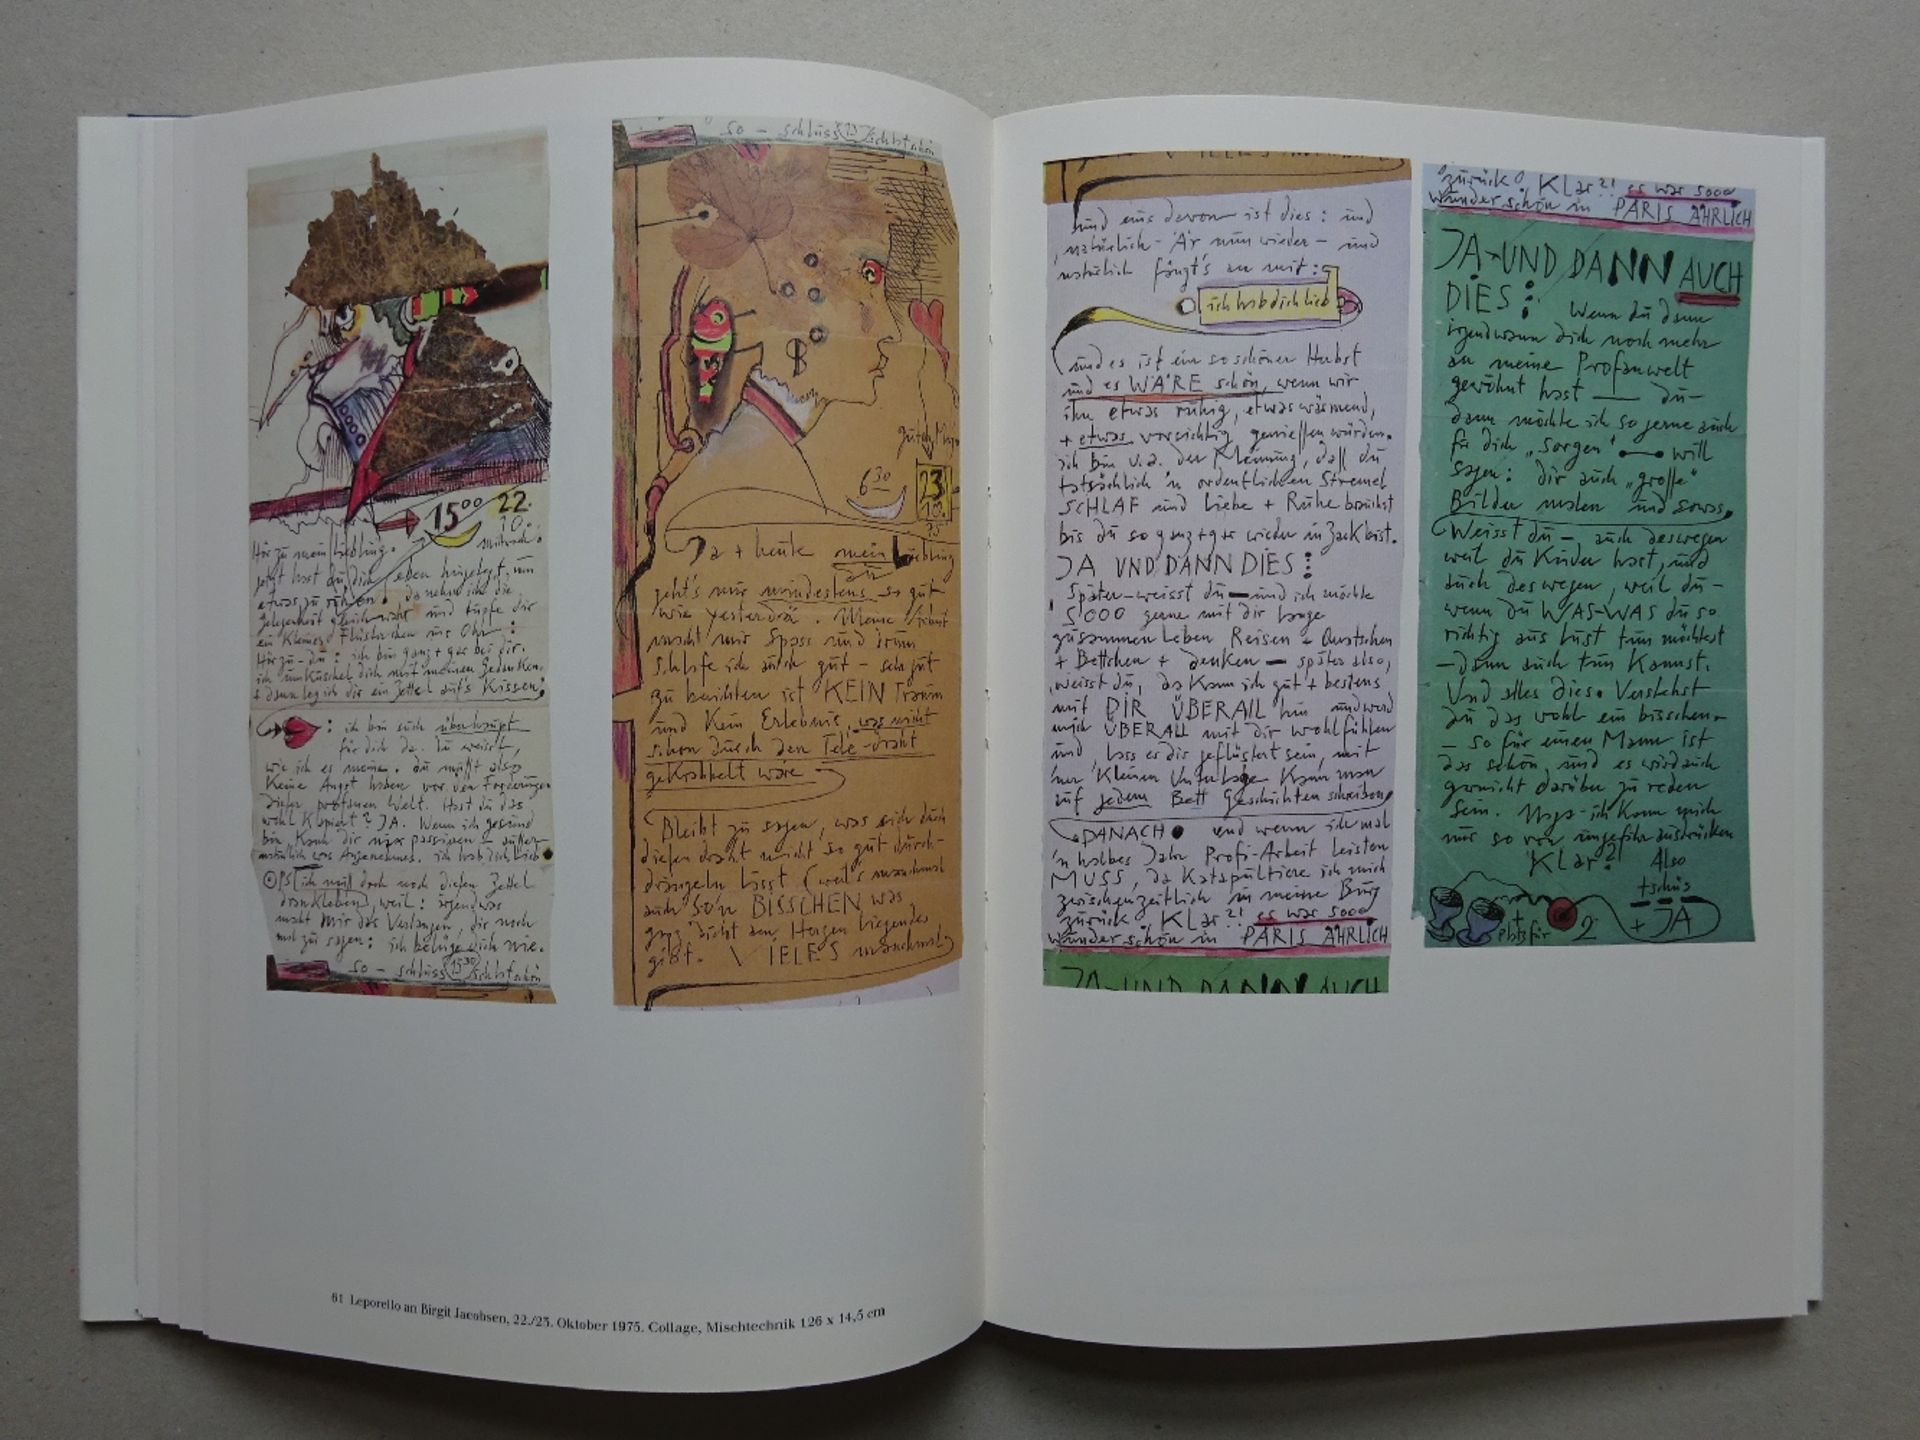 15⁰⁰ 22.
10.
Mittwoch!
Hör zu mein Liebling.
jetzt hast du dich eben hingelegt, um
etwas zu ruhen. da nehm ich die
gelegenheit gleich wahr und tupfe dir
ein Kleines Flüsterchen ins Ohr:
Hör zu - du: ich bin ganz + gar bei dir.
ich umkuschel dich mit meinen Gedanken.
+ dann leg ich dir ein Zettel auf's Kissen:
: ich bin auch überhaupt
für dich da. Du weisst,
wie ich es meine. du mußt also
Keine Angst haben vor den Forderungen
dieser profanen Welt. Hast du das
wohl Kapiert? JA. Wenn ich gesund
bin kann dir nix passieren - außer
natürlich was Angenehmes. ich hab dich lieb
PS ich muß doch noch diesen Zettel
drankleben, weil: irgendwas
macht mir das Verlangen, dir noch
mal zu sagen: ich belüge dich nie.
so - schluss 15³⁰ schlaf schön
so - schluss 15³⁰ schlaf schön
B
6³⁰
23.
10.
75
Ja + heute mein Liebling
du
geht's mir mindestens so gut
wie yesterday. Meine Arbeit
macht mir Spass und drum
schlafe ich auch gut - sehr gut
zu berichten ist KEIN Traum
und Kein Erlebnis, was nicht
schon durch den Tele-draht
gekrabbelt wäre
Bleibt zu sagen, was sich durch
diesen draht nicht so gut durch-
drängeln lässt (weil's manchmal
auch so'n BISSCHEN was
ganz dicht am Herzen liegendes
gibt. VIELES manchmal)
und eins davon ist dies: und
natürlich - nun wieder - und
natürlich fängt's an mit:
ich hab dich lieb
und es ist ein so schöner Herbst
und es WÄRE schön, wenn wir
ihn etwas ruhig, etwas wärmend,
+ etwas vorsichtig genießen würden.
ich bin u.a. der Meinung, daß du
tatsächlich 'n ordentlichen Stremel
SCHLAF und Liebe + Ruhe brauchst
bis du so ganz + gar wieder in Zack bist.
JA UND DANN DIES:
Später - weisst du - und ich möchte
SOOO gerne mit dir lange
zusammen Leben Reisen +
+ Bettchen + denken - später also,
weisst du, da Kann ich gut + bestens
mit DIR ÜBERALL hin und werd
mich ÜBERALL mit dir wohlfühlen
und, lass es dir geflüstert sein, mit
'ner Kleinen Unterlage Kann man
auf jedem Bett Geschichten schreiben,
DANACH. und wenn ich mal
'n halbes Jahr Profi-Arbeit leisten
MUSS, da Katapultiere ich mich
zwischenzeitlich in meine Burg
zurück. Klar?! es war sooo
wunderschön in PARIS ÄHRLICH
JA - UND DANN AUCH
zurück. Klar?! es war sooo
wunderschön in PARIS ÄHRLICH
JA - UND DANN AUCH
DIES: Wenn du dann
irgendwann dich noch mehr
an meine Profanwelt
gewöhnt hast — du -
dann möchte ich so gerne auch
für dich „sorgen" — will
sagen: dir auch „große"
Bilder malen und sowas.
Weisst du -, auch deswegen
weil du Kinder hast, und
auch deswegen, weil du -
wenn du WAS-WAS du so
richtig aus Lust tun möchtest
- dann auch tun Kannst.
Und alles dies. Verstehst
du das wohl ein bisschen -
- so für einen Mann ist
das schön, und es wird auch
garnicht darüber zu reden
sein. ich Kann mich
nur so von ungefähr ausdrücken
Klar? Also
tschüs
+ Platz für 2 + JA
61 Leporello an Birgit Jacobsen, 22./23. Oktober 1975. Collage, Mischtechnik 126 x 14,5 cm